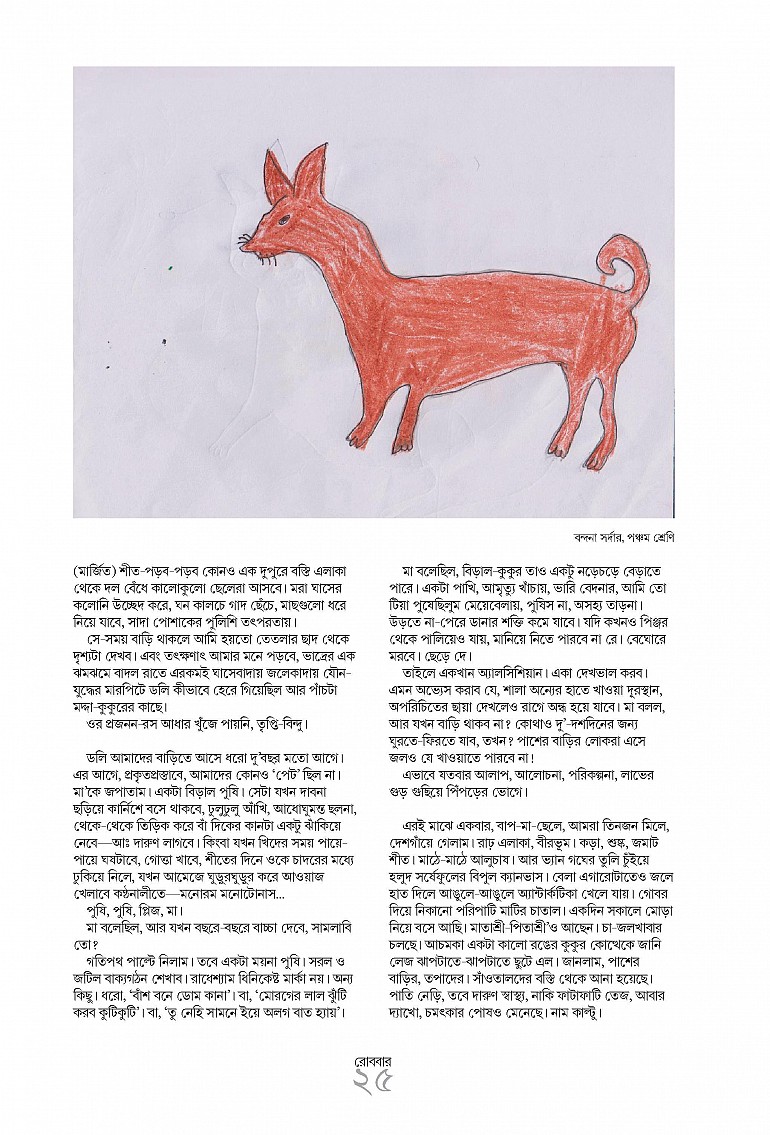 বন্দনা সর্দার, পঞ্চম শ্রেণি
(মার্জিত) শীত-পড়ব-পড়ব কোনও এক দুপুরে বস্তি এলাকা
থেকে দল বেঁধে কালোকুলো ছেলেরা আসবে। মরা ঘাসের
কলোনি উচ্ছেদ করে, ঘন কালচে গাদ ছেঁচে, মাছগুলো ধরে
নিয়ে যাবে, সাদা পোশাকের পুলিশি তৎপরতায়।
সে-সময় বাড়ি থাকলে আমি হয়তো তেতলার ছাদ থেকে
দৃশ্যটা দেখব। এবং তৎক্ষণাৎ আমার মনে পড়বে, ভাদ্রের এক
ঝমঝমে বাদল রাতে এরকমই ঘাসেবাদায় জলেকাদায় যৌন-
যুদ্ধের মারপিটে ডলি কীভাবে হেরে গিয়েছিল আর পাঁচটা
মদ্দা-কুকুরের কাছে।
ওর প্রজনন-রস আধার খুঁজে পায়নি, তৃপ্তি-বিন্দু।
ডলি আমাদের বাড়িতে আসে ধরো দু’বছর মতো আগে।
এর আগে, প্রকৃতপ্রস্তাবে, আমাদের কোনও ‘পেট’ ছিল না।
মা’কে জপাতাম। একটা বিড়াল পুষি। সেটা যখন দাবনা
ছড়িয়ে কার্নিশে বসে থাকবে, ঢুলুঢুলু আঁখি, আধোঘুমন্ত ছলনা,
থেকে-থেকে তিড়িক করে বাঁ দিকের কানটা একটু ঝাঁকিয়ে
নেবে—আঃ দারুণ লাগবে। কিংবা যখন খিদের সময় পায়ে-
পায়ে ঘষটাবে, গোত্তা খাবে, শীতের দিনে ওকে চাদরের মধ্যে
ঢুকিয়ে নিলে, যখন আমেজে ঘুড়ুরঘুড়ুর করে আওয়াজ
খেলাবে কণ্ঠনালীতে—মনোরম মনোটোনাস...
পুষি, পুষি, প্লিজ, মা।
মা বলেছিল, আর যখন বছরে-বছরে বাচ্চা দেবে, সামলাবি
তো?
গতিপথ পাল্টে নিলাম। তবে একটা ময়না পুষি। সরল ও
জটিল বাক্যগঠন শেখাব। রাধেশ্যাম ধিনিকেষ্ট মার্কা নয়। অন্য
কিছু। ধরো, ‘বাঁশ বনে ডোম কানা’। বা, ‘মোরগের লাল ঝুঁটি
করব কুটিকুটি’। বা, ‘তু নেহি সামনে ইয়ে অলগ বাত হ্যায়’।
মা বলেছিল, বিড়াল-কুকুর তাও একটু নড়েচড়ে বেড়াতে
পারে। একটা পাখি, আমৃত্যু খাঁচায়, ভারি বেদনার, আমি তো
টিয়া পুষেছিলুম মেয়েবেলায়, পুষিস না, অসহ্য তাড়না।
উড়তে না-পেরে ডানার শক্তি কমে যাবে। যদি কখনও পিঞ্জর
থেকে পালিয়েও যায়, মানিয়ে নিতে পারবে না রে। বেঘোরে
মরবে। ছেড়ে দে।
তাইলে একখান অ্যালসিশিয়ান। একা দেখভাল করব।
এমন অভ্যেস করাব যে, শালা অন্যের হাতে খাওয়া দূরস্থান,
অপরিচিতের ছায়া দেখলেও রাগে অন্ধ হয়ে যাবে। মা বলল,
আর যখন বাড়ি থাকব না? কোথাও দু’-দশদিনের জন্য
ঘুরতে-ফিরতে যাব, তখন? পাশের বাড়ির লোকরা এসে
জলও যে খাওয়াতে পারবে না!
এভাবে যতবার আলাপ, আলোচনা, পরিকল্পনা, লাভের
গুড় গুছিয়ে পিঁপড়ের ভোগে।
এরই মাঝে একবার, বাপ-মা-ছেলে, আমরা তিনজন মিলে,
দেশগাঁয়ে গেলাম। রাঢ় এলাকা, বীরভূম। কড়া, শুষ্ক, জমাট
শীত। মাঠে-মাঠে আলুচাষ। আর ভ্যান গঘের তুলি চুঁইয়ে
হলুদ সর্ষেফুলের বিপুল ক্যানভাস। বেলা এগারোটাতেও জলে
হাত দিলে আঙুলে-আঙুলে অ্যান্টার্কটিকা খেলে যায়। গোবর
দিয়ে নিকানো পরিপাটি মাটির চাতাল। একদিন সকালে মোড়া
নিয়ে বসে আছি। মাতাশ্রী-পিতাশ্রী’ও আছেন। চা-জলখাবার
চলছে। আচমকা একটা কালো রঙের কুকুর কোত্থেকে জানি
লেজ ঝাপটাতে-ঝাপটাতে ছুটে এল। জানলাম, পাশের
বাড়ির, তপাদের। সাঁওতালদের বস্তি থেকে আনা হয়েছে।
পাতি নেড়ি, তবে দারুণ স্বাস্থ্য, নাকি ফাটাফাটি তেজ, আবার
দ্যাখো, চমৎকার পোষও মেনেছে। নাম কাল্টু।
রোববার
২৫